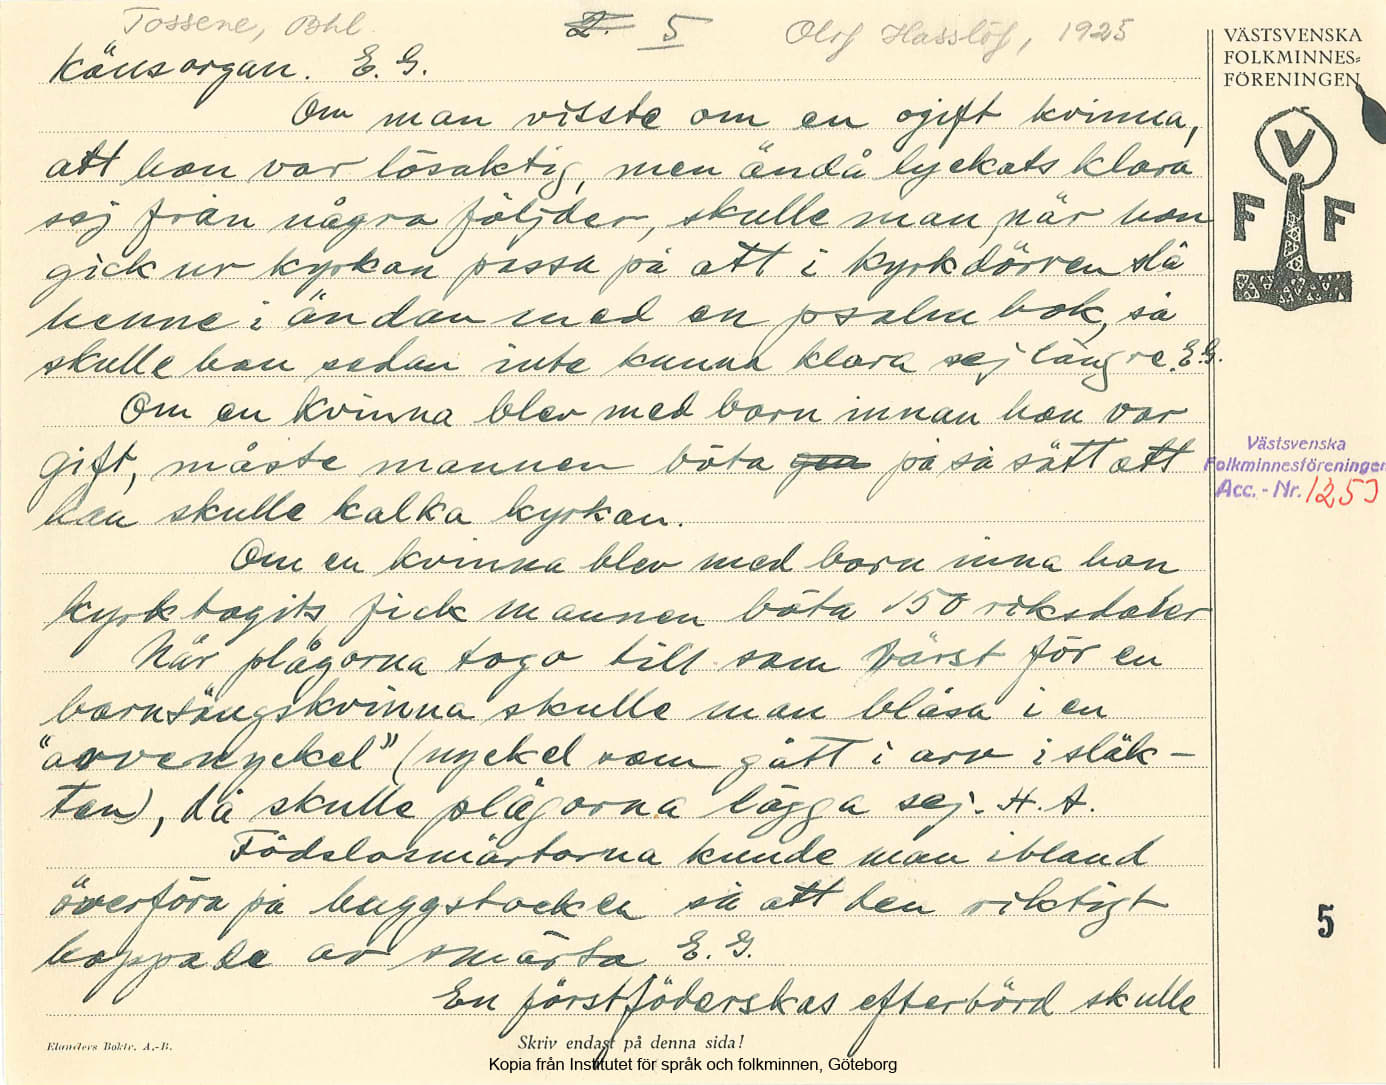 Tossene, Bhl.
2. 5
Olof Hasslöf, 1925
könsorgan. E. G.
Om man visste om en ogift kvinna,
att hon var lösaktig, men ändå lyckats klara
sej från några följder, skulle man, när hon
gick ur kyrkan passa på att i kyrkdörren slå
henne i ändan med en psalmbok, så
skulle hon sedan inte kunna klara sej längre. E. G.
Om en kvinna blev med barn innan hon var
gift, måste mannen böta gen på så sätt att
han skulle kalka kyrkan.
Om en kvinna blev med barn inna hon
kyrktagits, fick mannen böta 150 riksdaler
När plågorna togo till som värst för en
barnsängskvinna skulle man blåsa i en
"arvenyckel" (nyckel som gått i arv i släk-
ten), då skulle plågorna lägga sej. H. A.
Födslosmärtorna kunde man ibland
överföra på huggstocken så att den riktigt
hoppade av smärta E. G.
En förstföderskas efterbörd skulle
Elanders Boktr. A.-B.
Skriv endast på denna sida!
Kopia från Institutet för språk och folkminnen, Göteborg
VÄSTSVENSKA
FOLKMINNES=
FÖRENINGEN
V
F F
Västsvenska
Folkminnesföreningen
Acc. - Nr. 1253
5